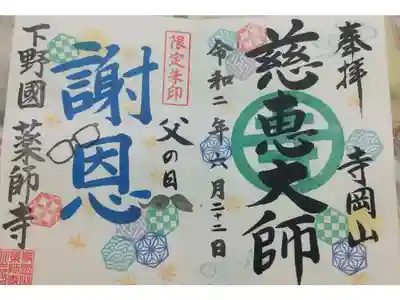 奉拝 寺岡山
慈恵大師
令和二年六月二十二日
限定朱印
父の日
謝恩
下野國 薬師寺